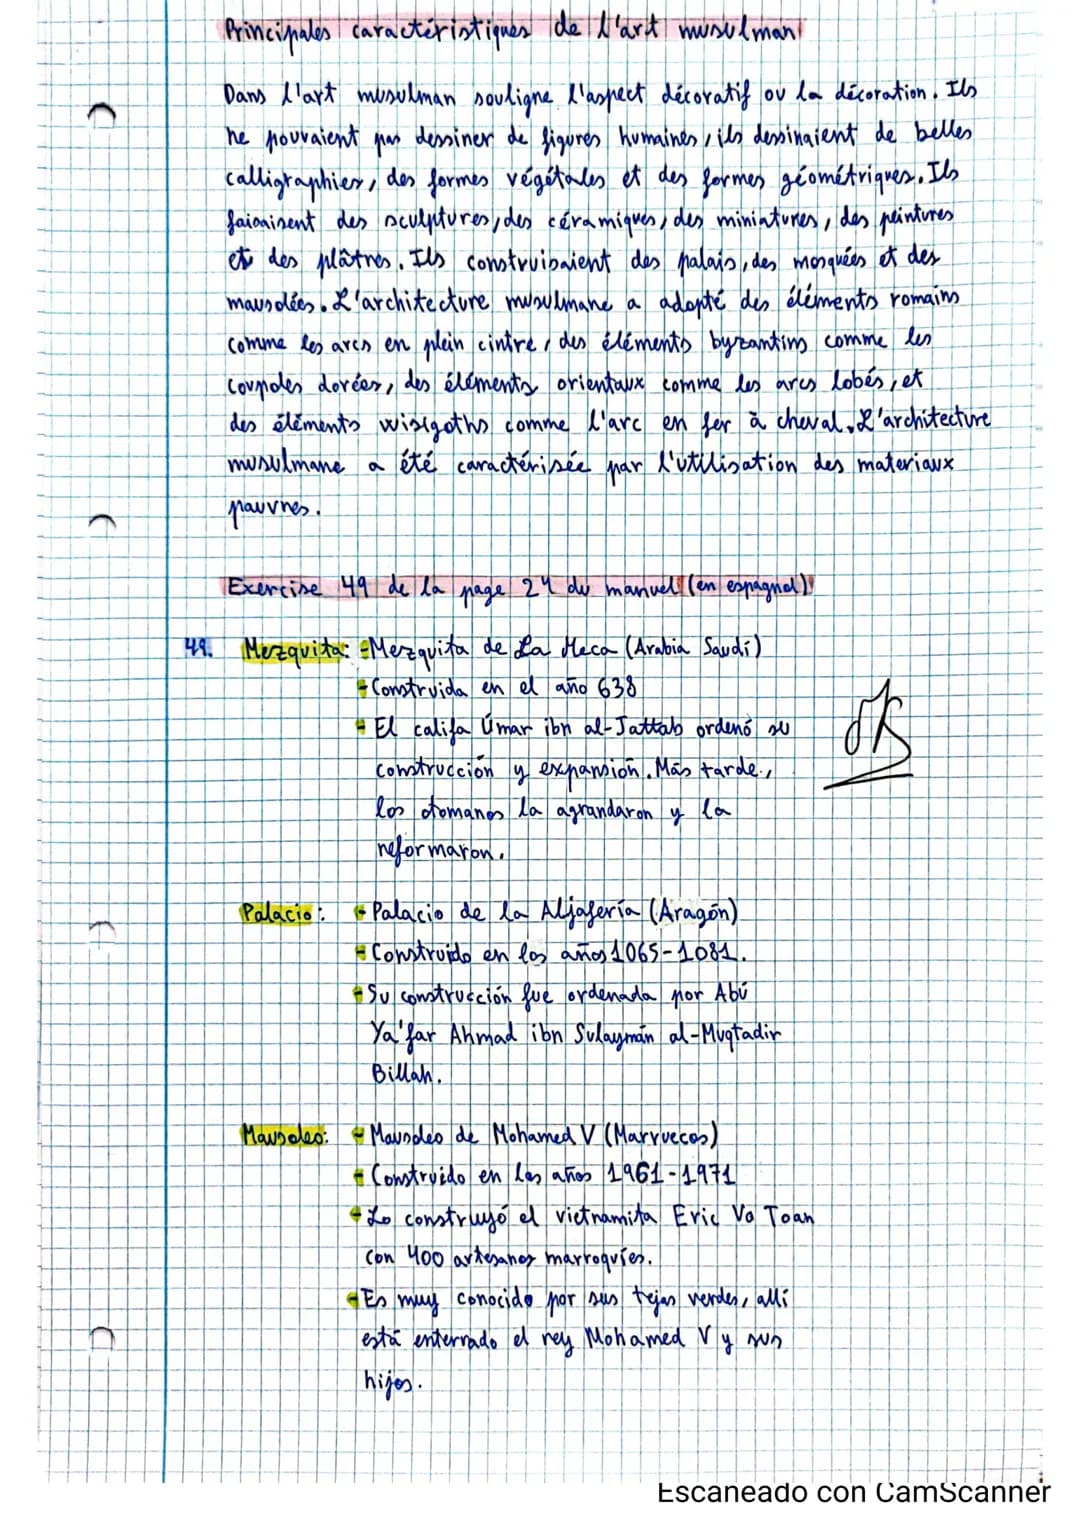 Principales caractéristiques de l'art musulman
Dans l'art musulman souligne l'aspect décoratif ou la décoration. Ils
ne pouvaient pas dessiner de figures humaines, ils dessinaient de belles
calligraphies, des formes végétales et des formes géométriques. Ils
faisaisent des sculptures, des céramiques, des miniatures, des peintures
et des plâtres. Ils construisaient des palais, des mosquées et des
mausolées. L'architecture musulmane a adopté des éléments romains
comme les arcs en plein cintre, des éléments byzantins comme les
coupoles dorées, des éléments orientaux comme les arcs lobés, et
des éléments wisigoths comme l'arc en fer à cheval. L'architecture
musulmane a été caractérisée par l'utilisation des materiaux
pauvres.
Exercise 49 de la page 24 du manuel (en espagnol)
49. Mezquita: -Mezquita de La Meca (Arabia Saudí)
-Construida en el año 638
-El califa Úmar ibn al-Jattab ordenó su
construcción y expansión. Más tarde,
los otomanos la agrandaron y la
reformaron.
Palacio: -Palacio de la Aljafería (Aragón)
-Construido en los años 1065-1081.
-Su construcción fue ordenada por Abú
Ya'far Ahmad ibn Sulaymán al-Muqtadir
Billah.
Mausoleo: -Mausoleo de Mohamed V (Marruecos)
-Construido en los años 1961-1971
-Lo construyó el vietnamita Eric Vo Toan
con 400 artesanos marroquíes.
-Es muy conocido por sus tejas verdes, allí
está enterrado el rey Mohamed V y sus
hijos.
Escaneado con CamScanner